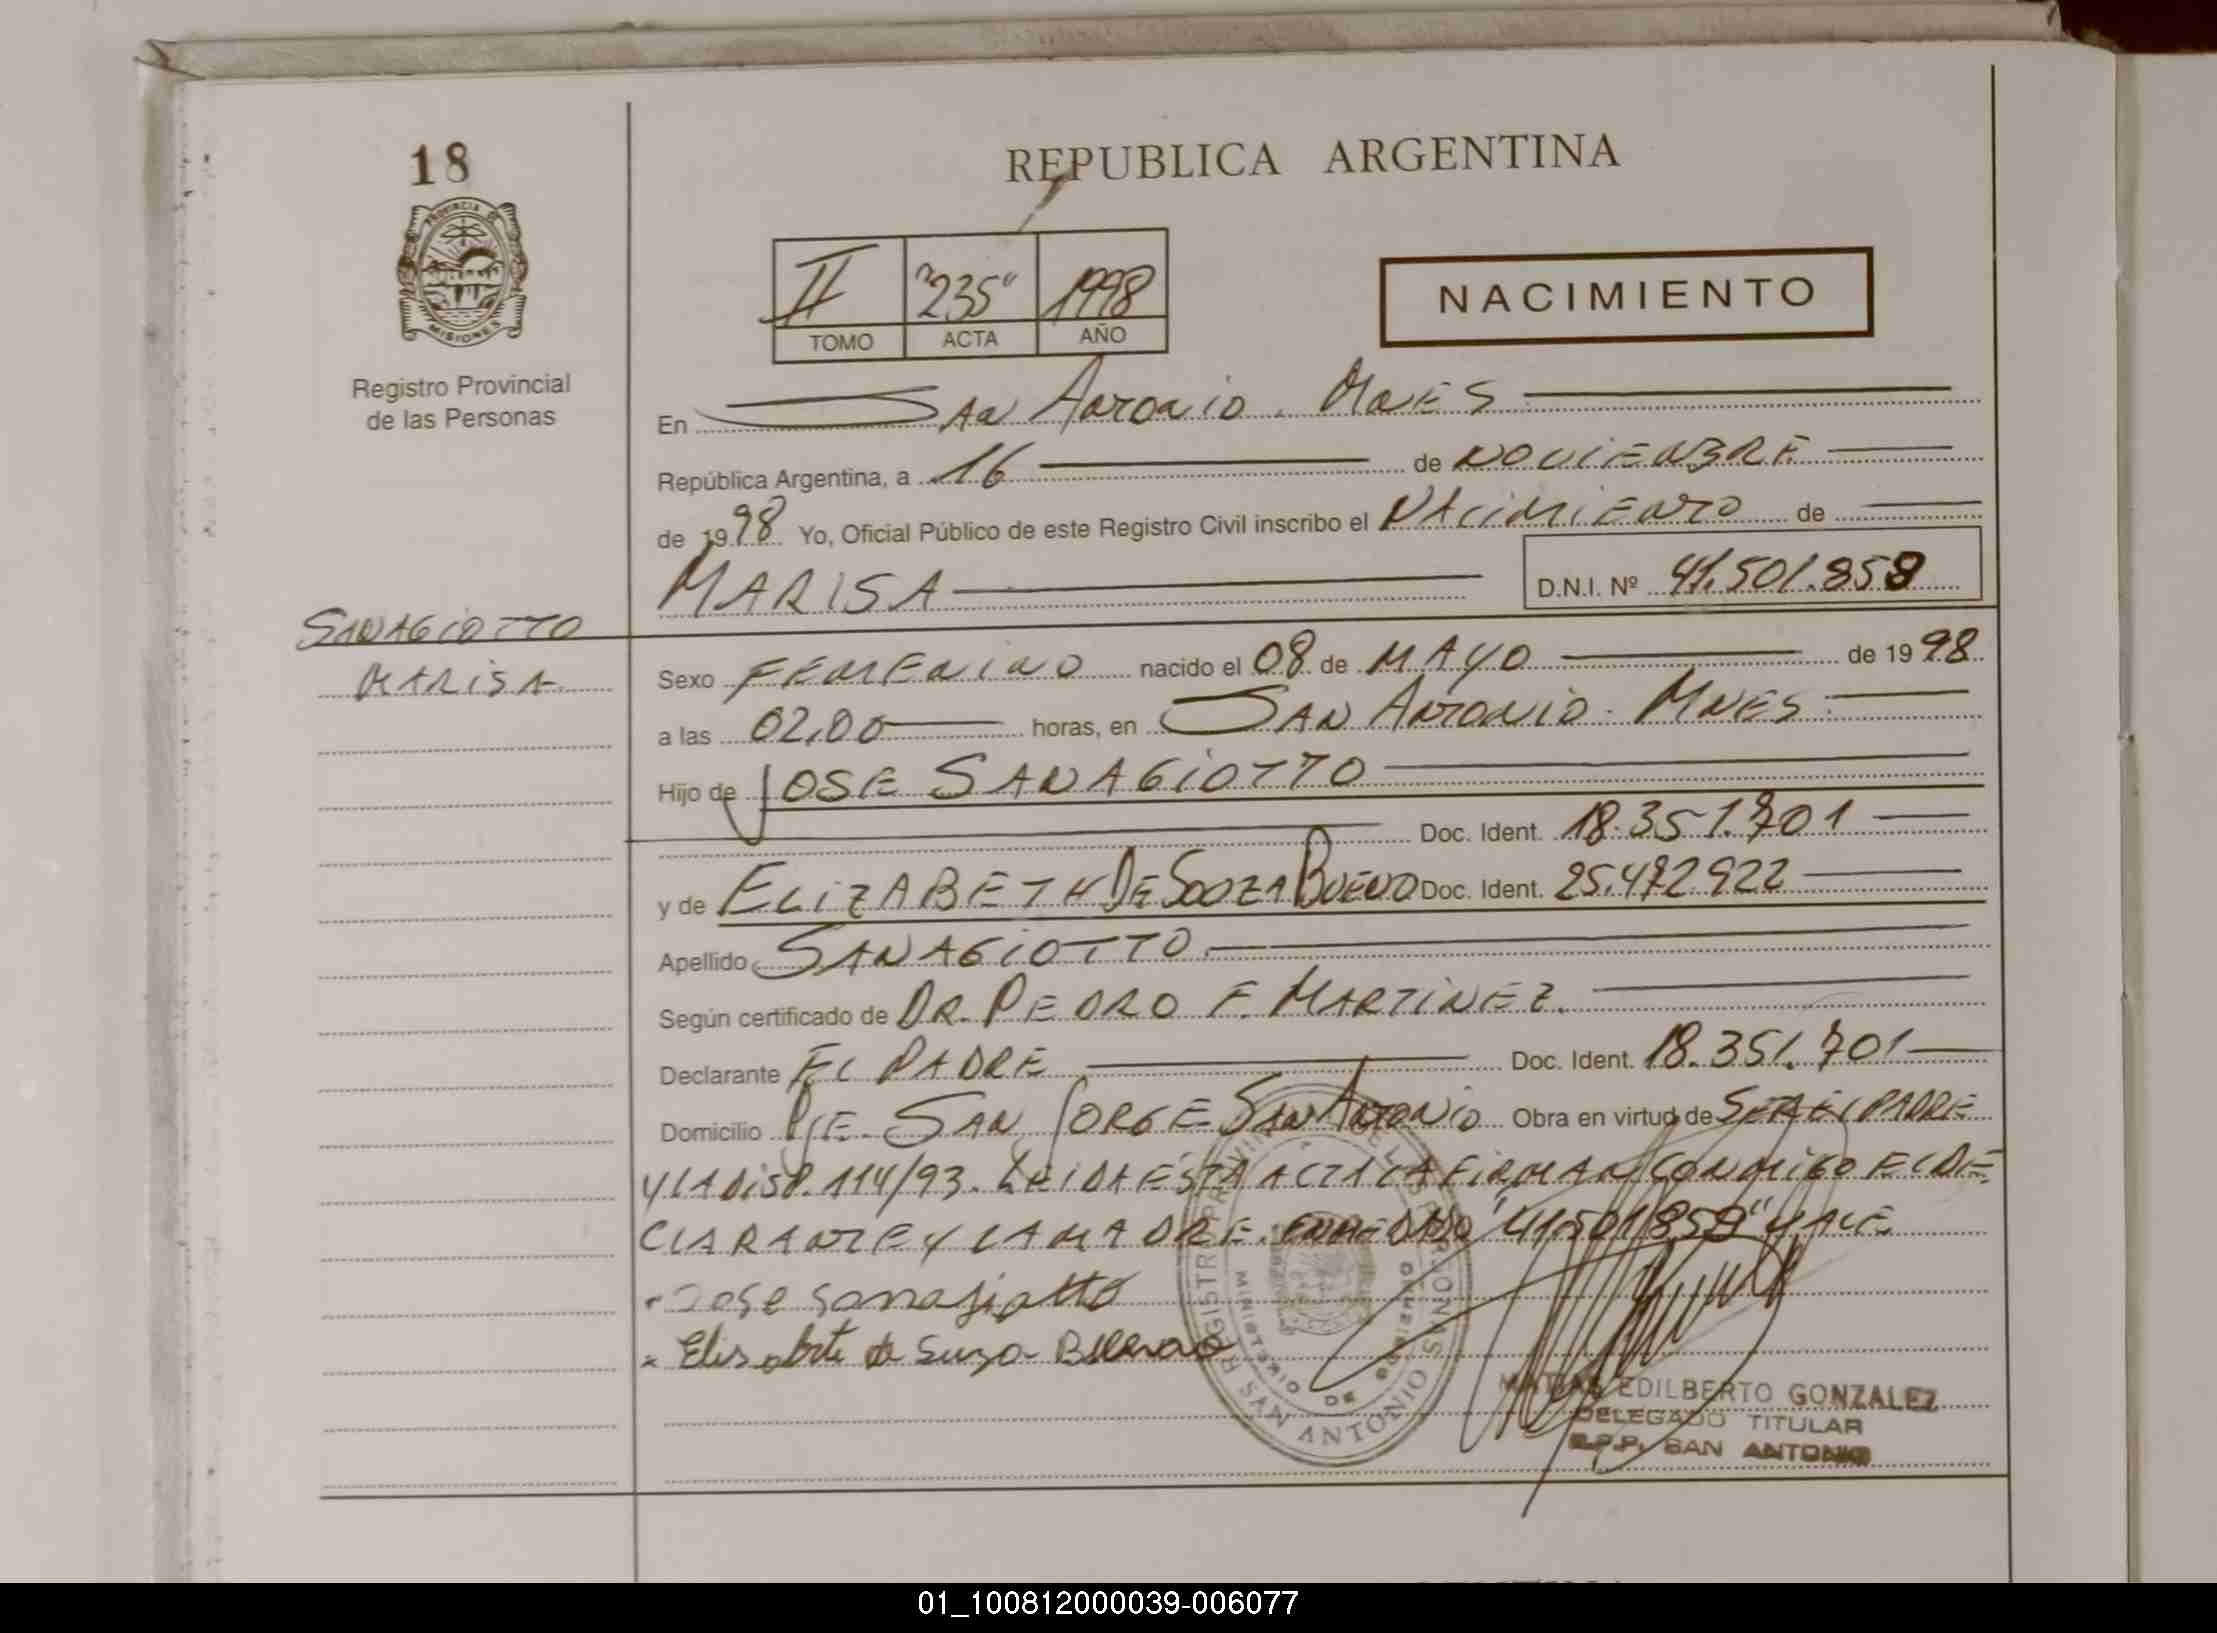 18
PROVINCIA DE
MISIONES
Registro Provincial
de las Personas
SANAGIOTTO
MARISA
REPUBLICA ARGENTINA
II "235" 1998
TOMO ACTA AÑO
NACIMIENTO
En SAN ANTONIO. MNES
República Argentina, a 16 de NOVIEMBRE
de 1998 Yo, Oficial Público de este Registro Civil inscribo el NACIMIENTO de
MARISA D.N.I. Nº 41.501.858
Sexo FEMENINO nacido el 08 de MAYO de 1998
a las 02,00 horas, en SAN ANTONIO. MNES
Hijo de JOSE SANAGIOTTO
Doc. Ident. 18.351.701
y de ELIZABETH DE SOUZA BUENO Doc. Ident. 25.472922
Apellido SANAGIOTTO
Según certificado de DR. PEDRO F. MARTINEZ.
Declarante EL PADRE Doc. Ident. 18.351.701
Domicilio PJE. SAN JORGE SAN ANTONIO Obra en virtud de SER EL PADRE
Y LA DISP. 114/93. LEIDA ESTA ACTA LA FIRMAN CONMIGO EL DE
CLARANTE Y LA MADRE. ENMENDADO "41.501.858" VALE
Jose Sanagiotto
Elisabete de Suza Bueno
REGISTRO PROVINCIAL DE LAS PERSONAS
MINISTERIO DE GOBIERNO
SAN ANTONIO
MATIAS EDILBERTO GONZALEZ
DELEGADO TITULAR
R.P.P. SAN ANTONIO
01_100812000039-006077